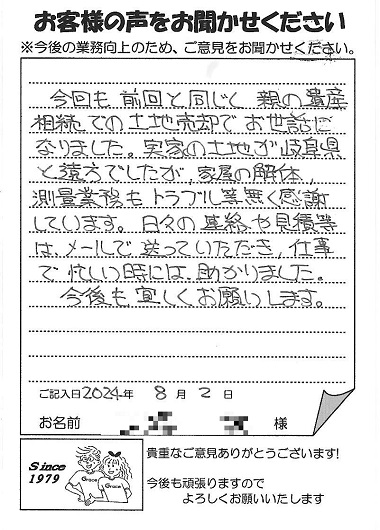 お客様の声をお聞かせください
※今後の業務向上のため、ご意見をお聞かせください。
今回も前回と同じく親の遺産
相続での土地売却でお世話に
なりました。実家の土地が岐阜県
と遠方でしたが、家屋の解体、
測量業務もトラブル等無く感謝
しています。日々の連絡や見積等
は、メールで送っていただき、仕事
で忙しい時には助かりました。
今後も宜しくお願いします。
ご記入日2024年 8月 2日
お名前 様
Since
1979
Grace
Grace
貴重なご意見ありがとうございます!
今後も頑張りますので
よろしくお願いいたします